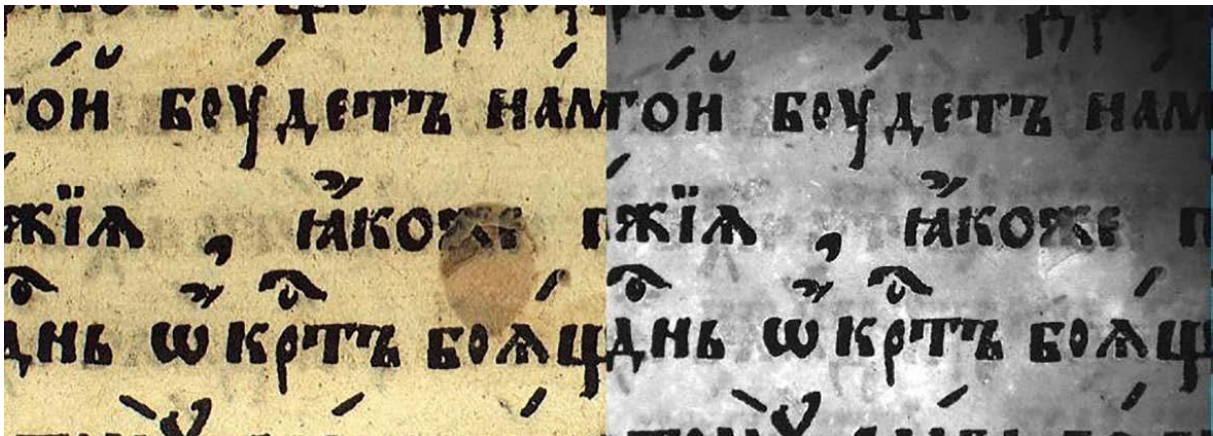 то́й боу́детъ на́м
жїѧ , ꙗ҆́коже п
дⷭ҇нь ѡ҆́крⷭ҇тъ боѧ́щ
то́й боу́детъ на́м
жїѧ , ꙗ҆́коже п
дⷭ҇нь ѡ҆́крⷭ҇тъ боѧ́щ